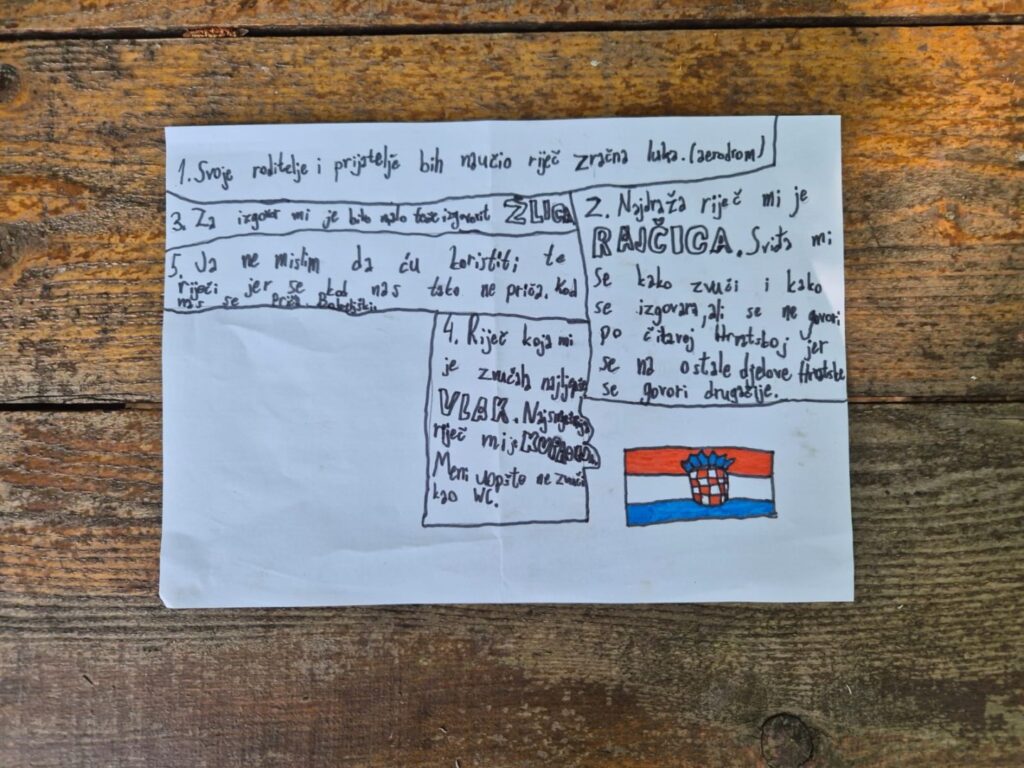 1. Svoje roditelje i prijatelje bih naučio riječ zračna luka. (aerodrom)
2. Najdraža riječ mi je
RAJČICA. Sviđa mi
se kako zvuči i kako
se izgovara, ali se ne govori
po čitavoj Hrvatskoj jer
se na ostale djelove Hrvatske
se govori drugačije.
3. Za izgovor mi je bilo malo teže izgovorit ŽLICA
4. Riječ koja mi
je zvučala najljepše
VLAK. Najsmješnija
riječ mi je
Meni uopšte ne zvuči
kao WC.
5. Ja ne mislim da ću koristiti te
riječi jer se kod nas tako ne priča. Kod
nas se priča Bokeljški.